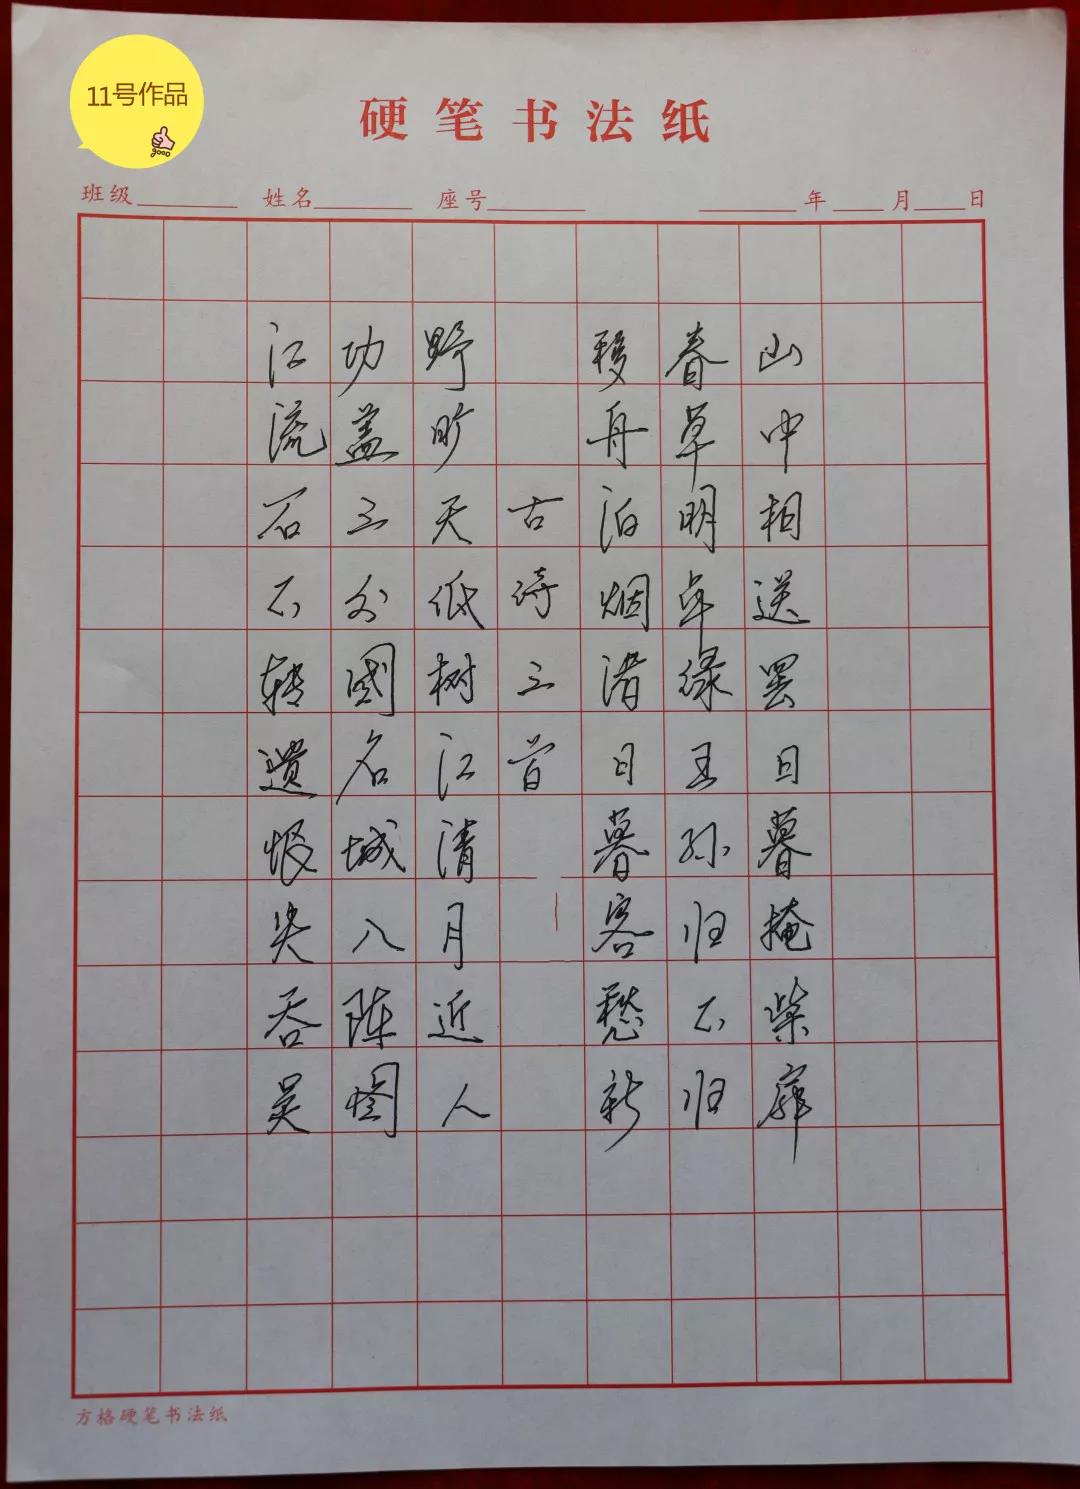 11号作品
gooo
硬笔书法纸
班级 姓名 座号 年 月 日
山中相送罢日暮掩柴扉
春草明年绿王孙归不归
移舟泊烟渚日暮客愁新
古诗三首
野旷天低树江清月近人
功盖三分國名成八阵图
江流石不转遗恨失吞吴
方格硬笔书法纸